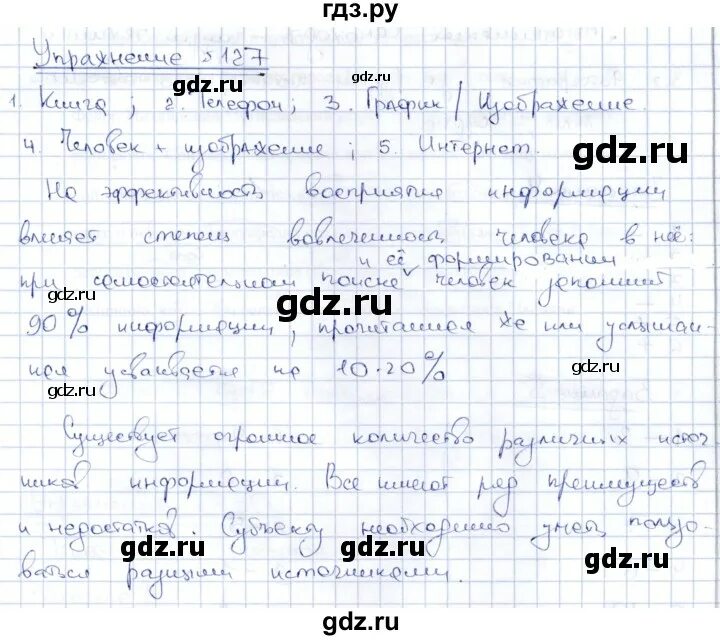 гдз.ру
Упражнение №127
1. Книга ; 2. Телефон ; 3. График / Изображение.
4. Человек + изображение ; 5. Интернет.
На эффективность восприятия информации
влияет степень вовлеченности человека в неё:
и её формировании
при самостоятельном поиске человек запомнит
90% информации, прочитанная же или услышан-
ная усваивается на 10-20%
Существует огромное количество различных источ-
ников информации. Все имеют ряд преимуществ
и недостатков. Субъекту необходимо уметь пользо-
ваться разными источниками.
gdz.ru
gdz.ru
gdz.ru
gdz.ru
gdz.ru
gdz.ru
gdz.ru
gdz.ru
gdz.ru
gdz.ru
gdz.ru
gdz.ru
gdz.ru
gdz.ru